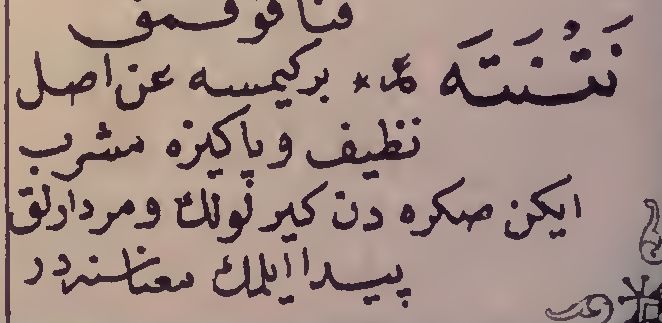 نَتُنَتَه بر كيمسه عن اصل
نظيف و پاكيزه مشرب
ايكن صكره دن كيرنولك و مردارلق
پيدا ايلمك معناسنه در